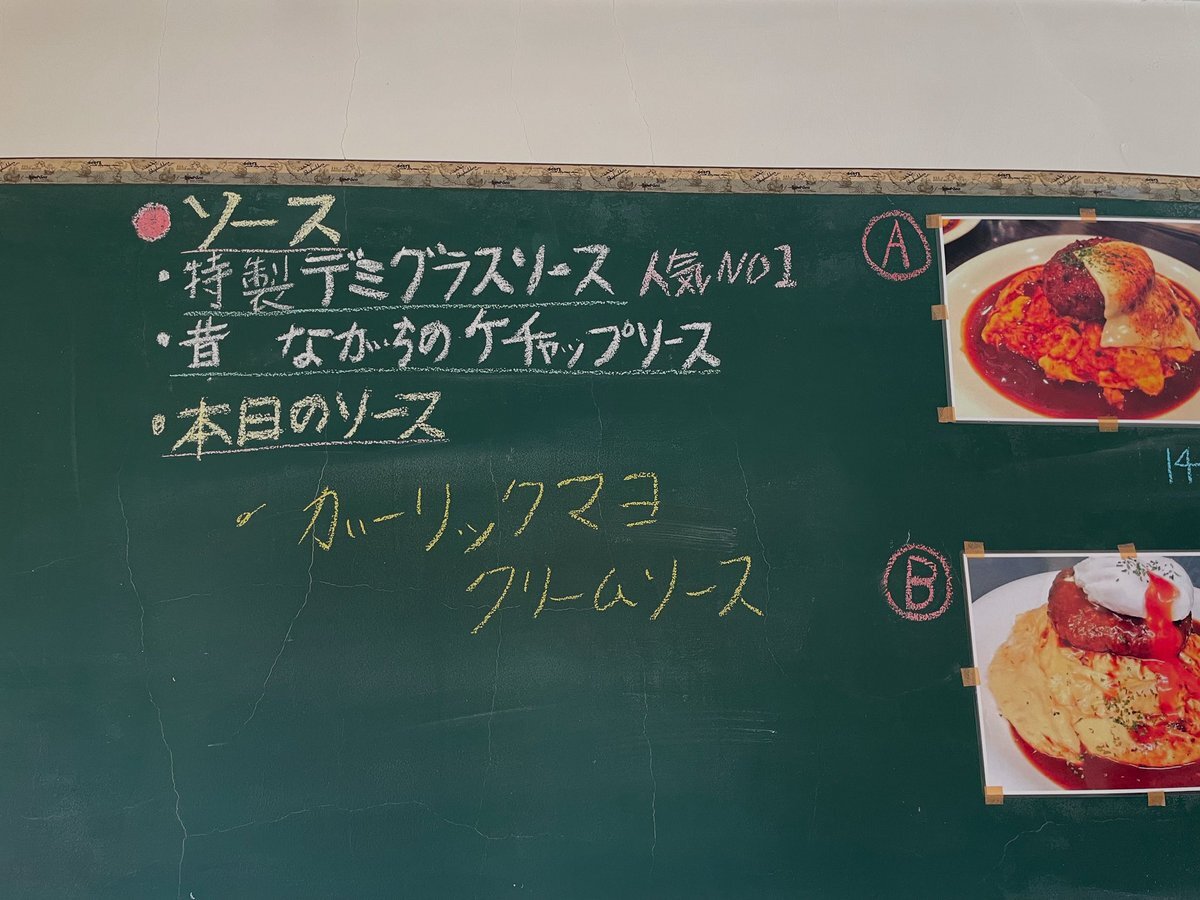 ● ソース
・特製デミグラスソース 人気NO1
・昔 ながらのケチャップソース
・本日のソース
・ガーリックマヨ
クリームソース
A
14
B